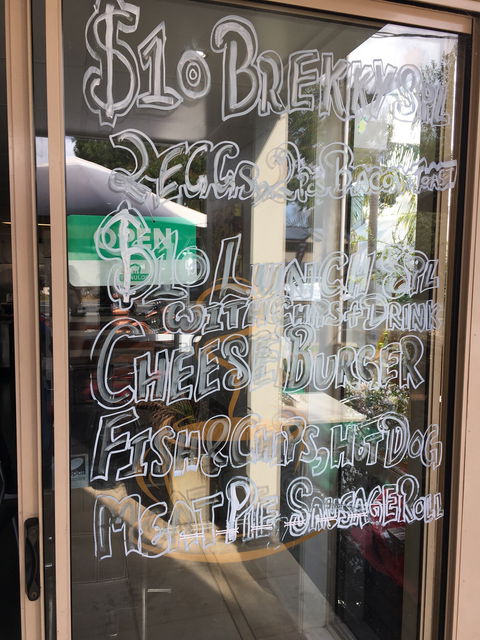 $10 BREKKY SPL
2 EGGS, 2 BACON TOAST
OPEN
$10 LUNCH SPL
WITH CHIPS + DRINK
CHEESE BURGER
FISH & CHIPS, HOT DOG
MEAT PIE SAUSAGE ROLL